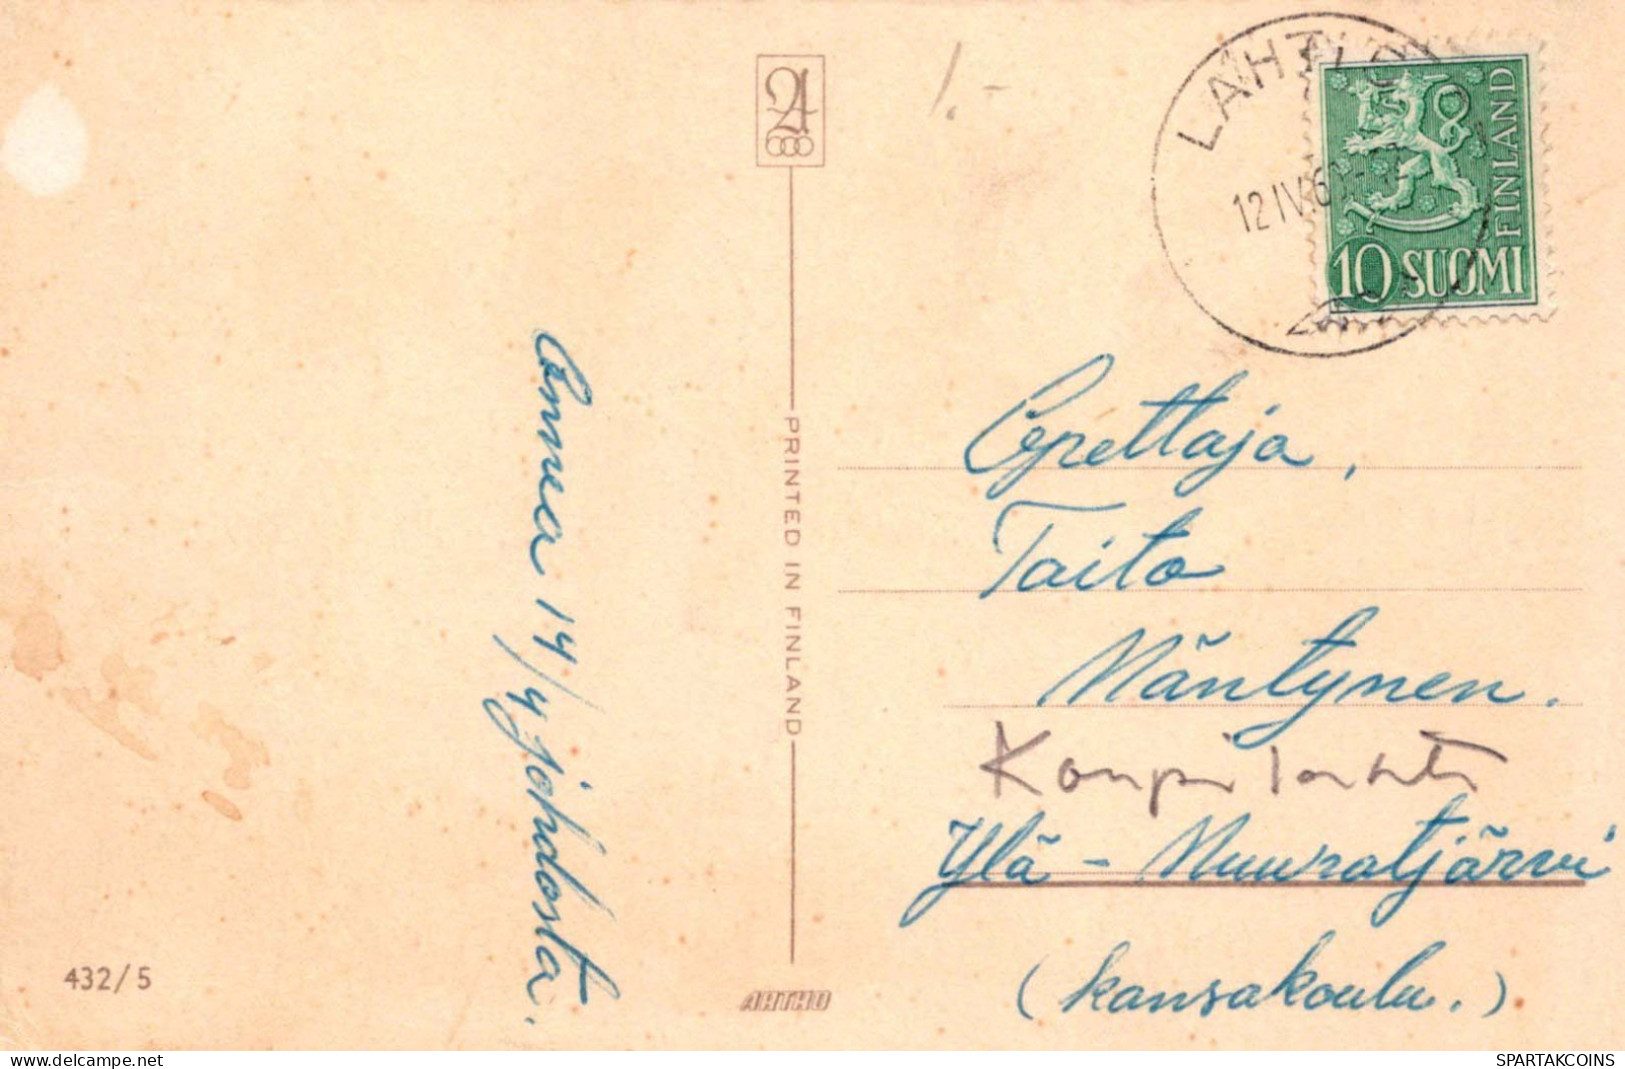 Onnea 14/4 johdosta.
1.-
PRINTED IN FINLAND
432/5
ARTKO
LAHTI
12 IV. 6
FINLAND
10 SUOMI
Opettaja,
Taito
Mäntynen.
Ylä-Muuratjärvi
(kansakoulu.)
delcampe.net
SPARTAKCOINS